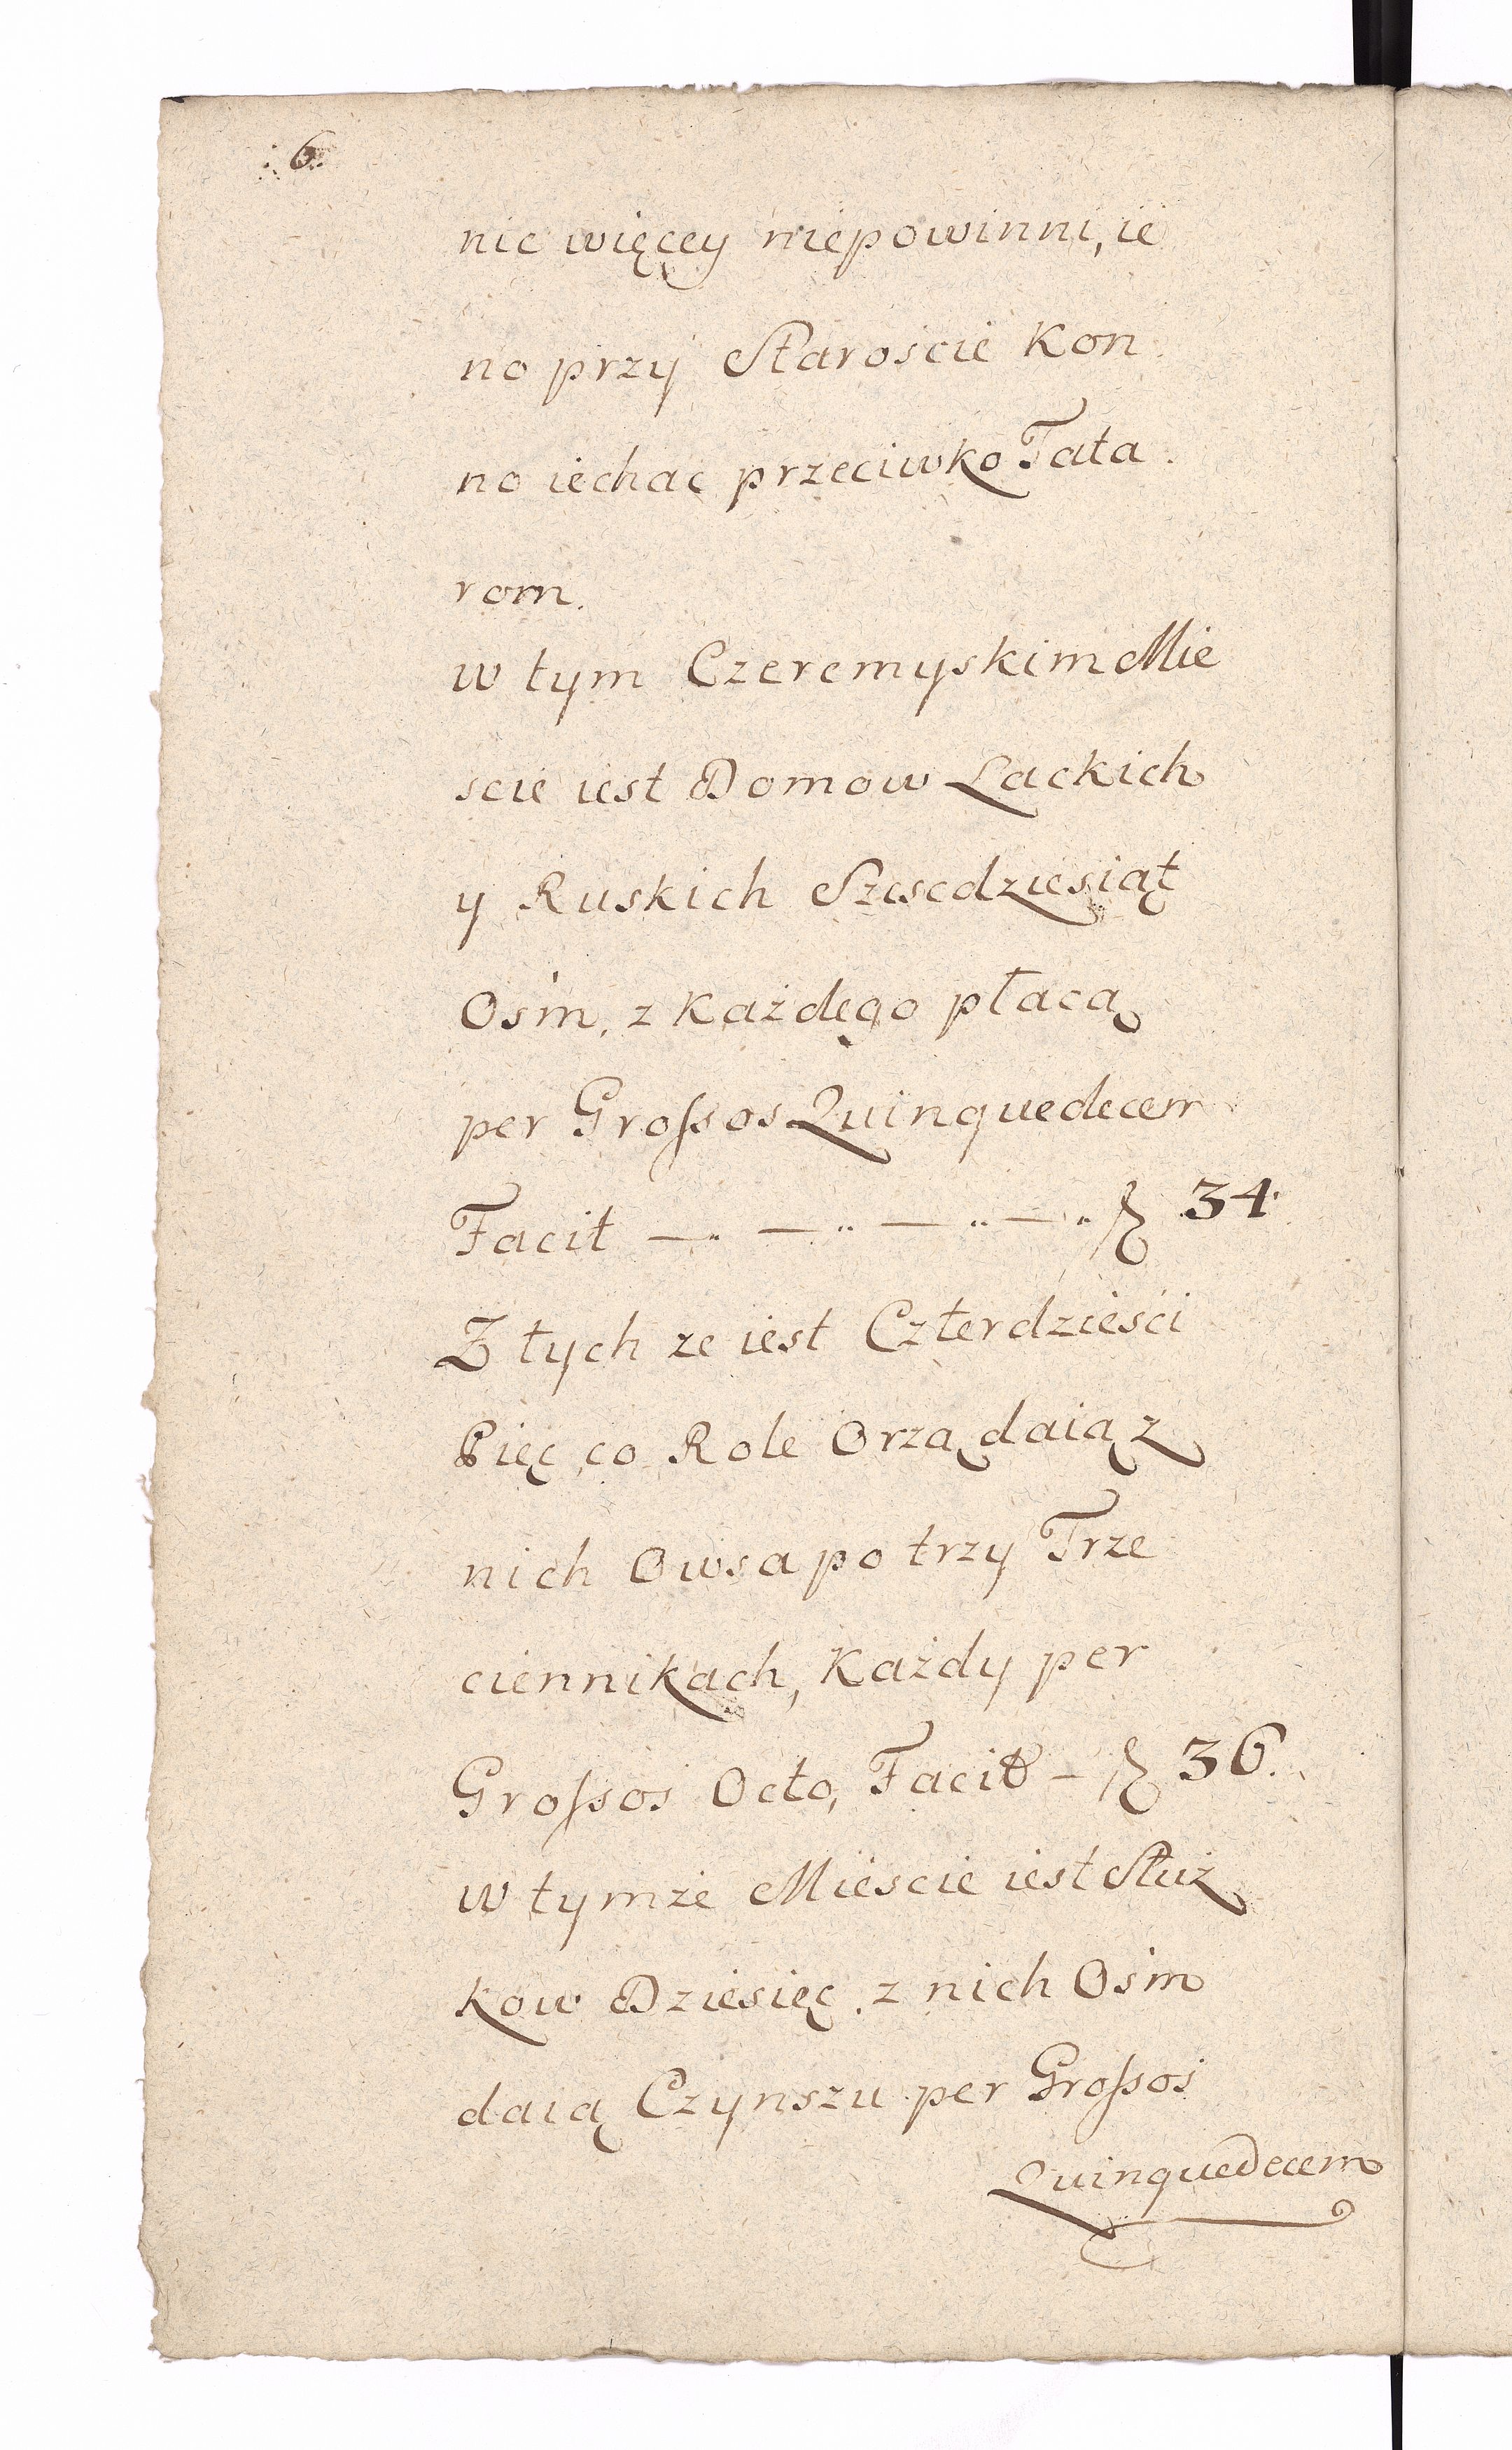 :6:
nic więcey niepowinni, ie
no przy Staroscie Kon
no iechac przeciwko Tata
rom.
w tym Czeremyskim Mie
scie iest Domow Lackich
y Ruskich Szescdziesiąt
Ośm, z Każdego płacą
per Groſsos Quinquedecem
Facit — .. — .. — .. — .. 34.
Z tych ze iest Czterdzieści
Pięc, co Role Orzą daią z
nich Owsa po trzy Trze
ciennikach, Każdy per
Groſsos Octo, Facit — 36.
w tymże Miescie iest Służ
kow Dziesięc, z nich Ośm
daią Czynszu per Groſsos
Quinquedecem